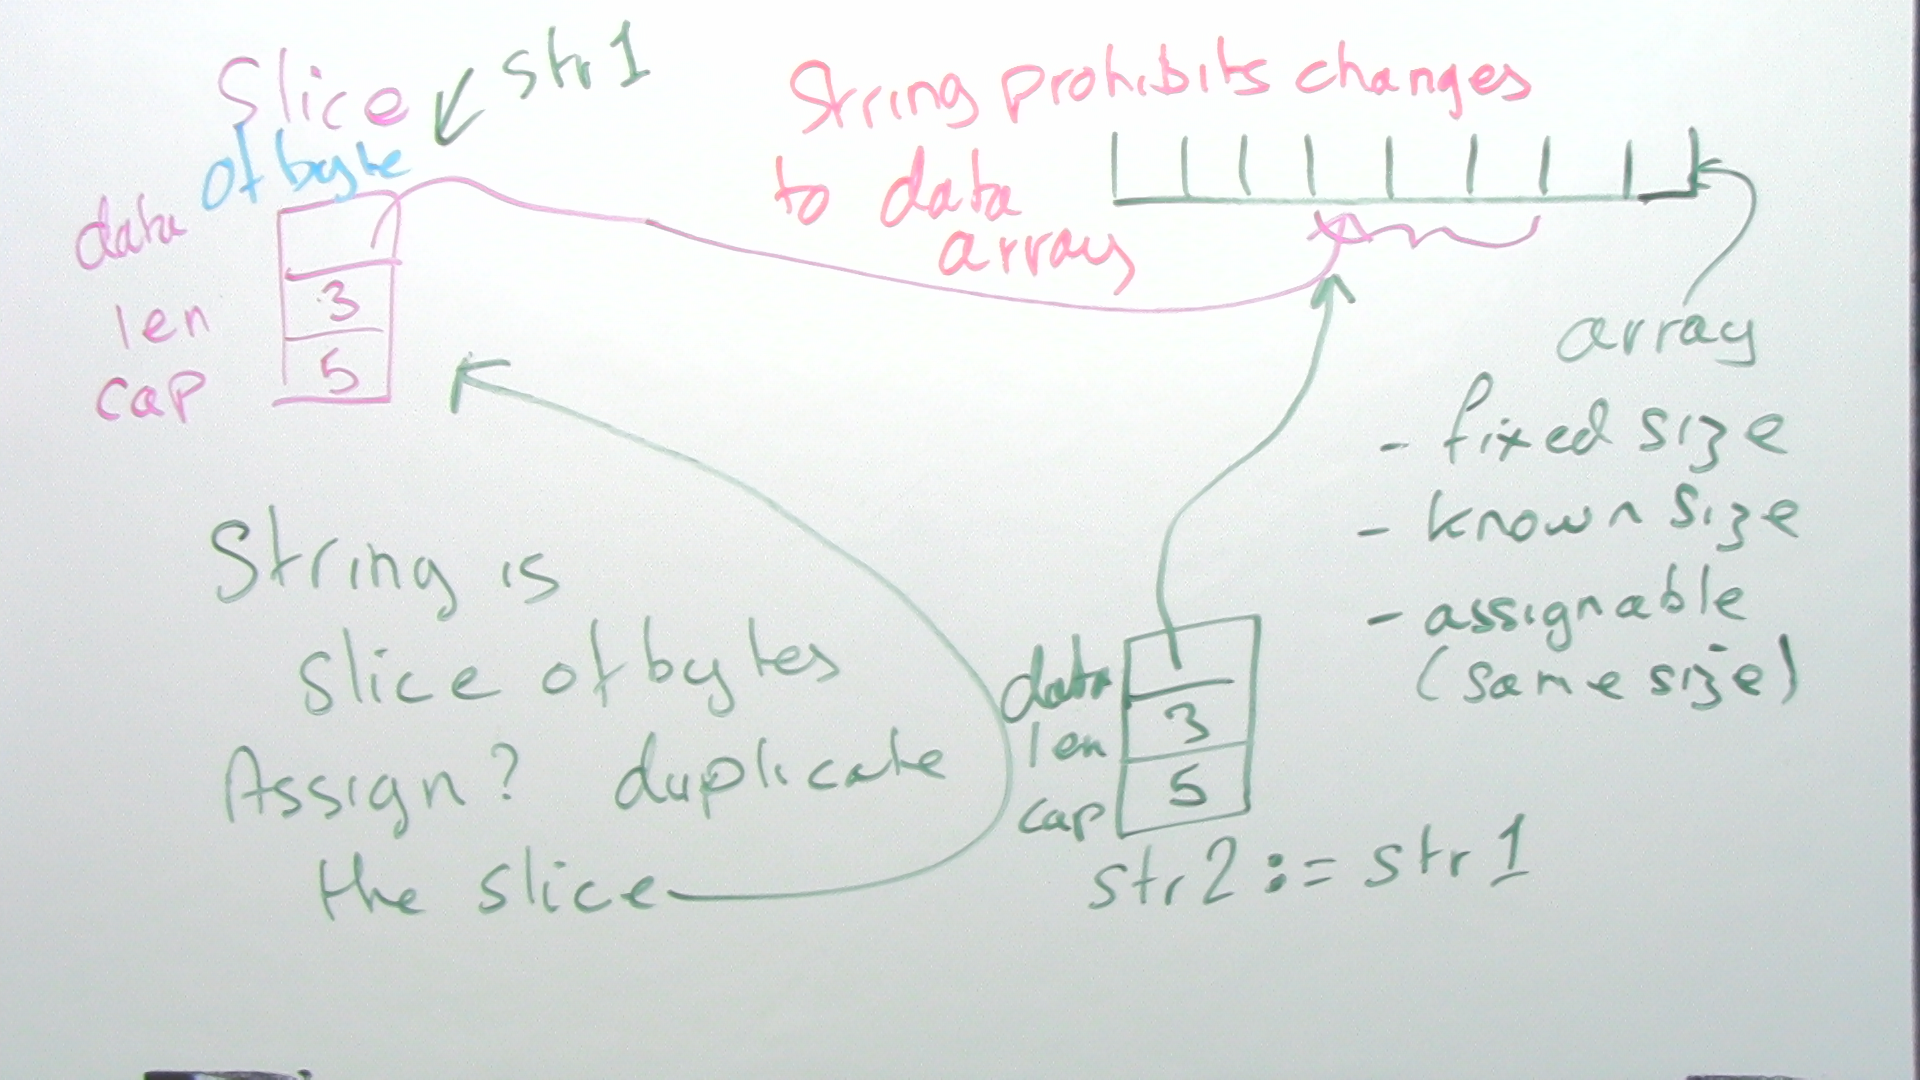 Slice
of byte
str1
data
len
cap
3
5
String prohibits changes
to data
array
array
- fixed size
- known size
- assignable
(same size)
String is
slice of bytes
Assign? duplicate
the slice
data
len
cap
3
5
str2 := str1